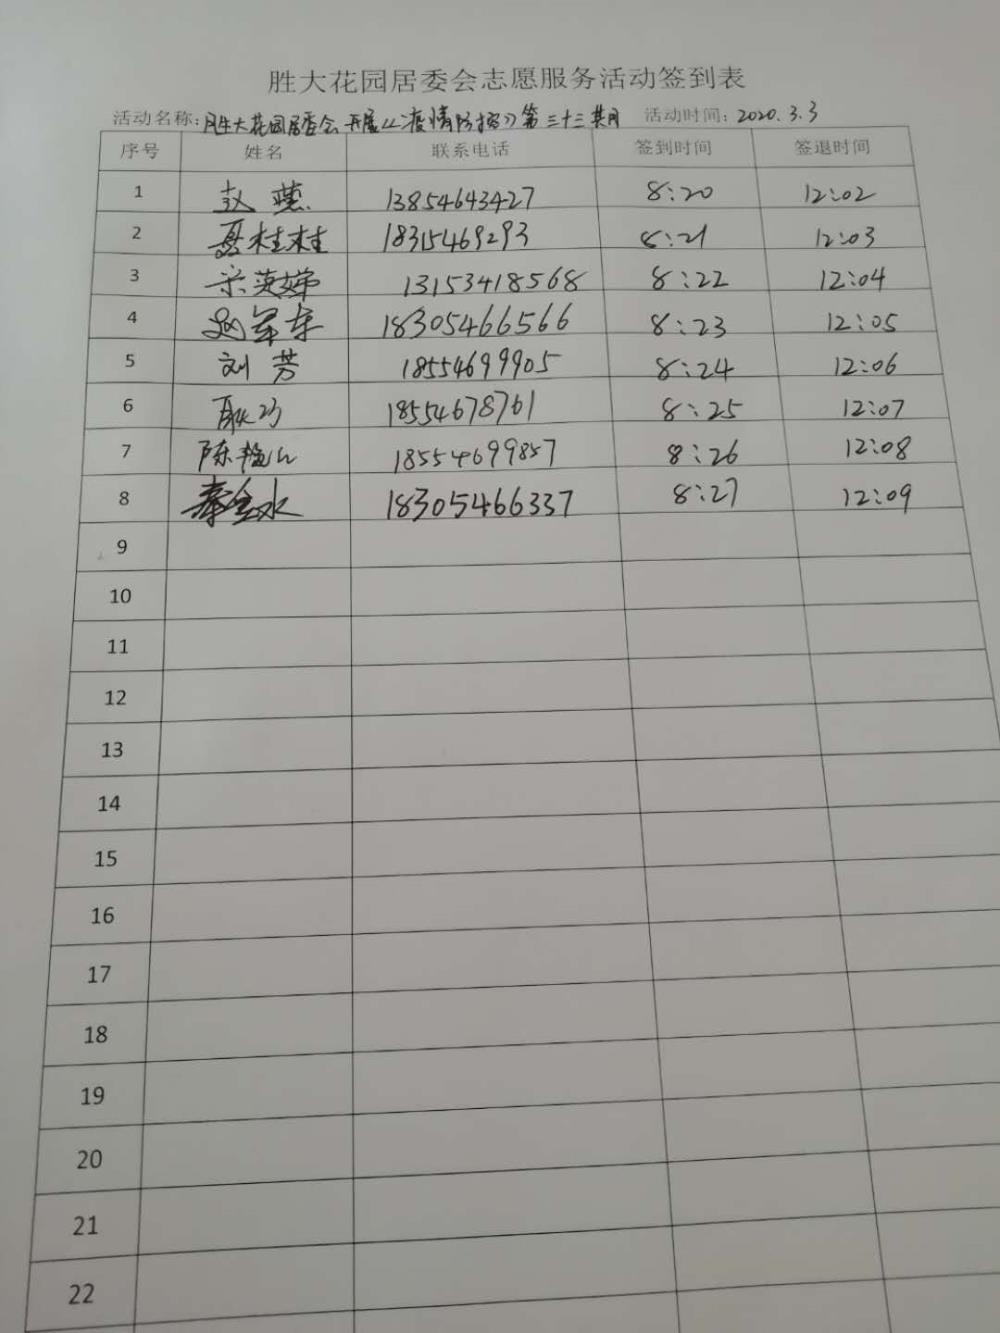 胜大花园居委会志愿服务活动签到表
活动名称：胜大花园居委会开展《疫情防控》第三十三期 活动时间：2020.3.3
序号 姓名 联系电话 签到时间 签退时间
1 赵燕 13854643427 8:20 12:02
2 聂桂桂 18315469293 8:21 12:03
3 宋英娣 13153418568 8:22 12:04
4 军 18305466566 8:23 12:05
5 刘芳 18554699905 8:24 12:06
6 耿巧 18554678761 8:25 12:07
7 陈艳 18554699857 8:26 12:08
8 秦金水 18305466337 8:27 12:09
9
10
11
12
13
14
15
16
17
18
19
20
21
22